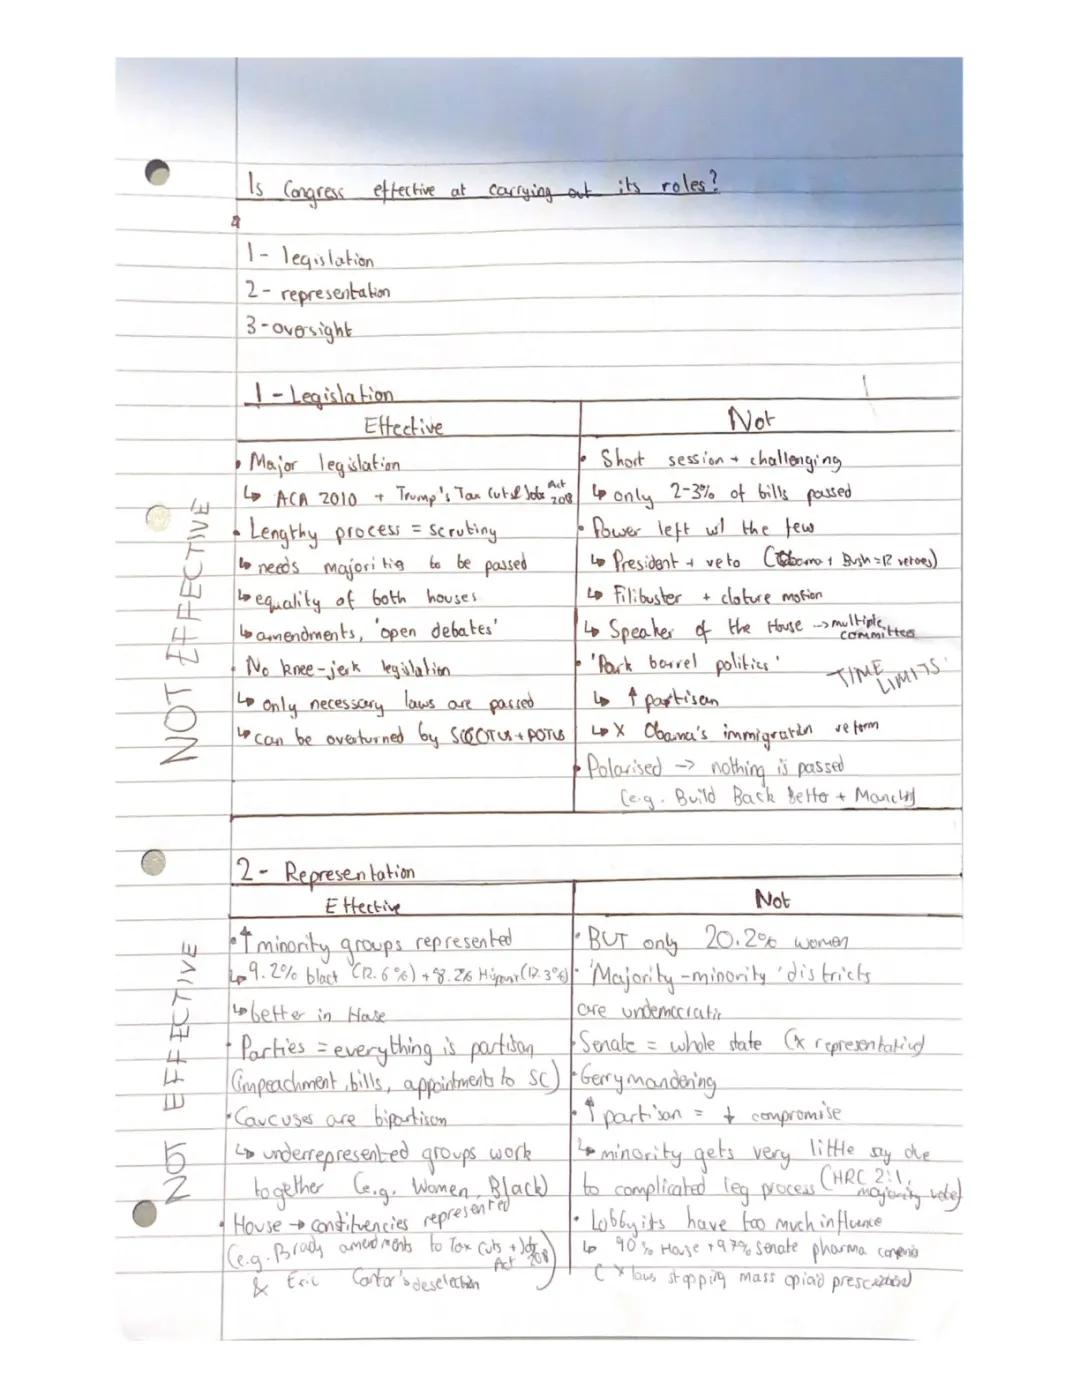 Is Congress effective at carrying out its roles?
1 - legislation
2 - representation
3 - oversight
1 - Legislation
Effective
• Major legislation
↳ ACA 2010 + Trump's Tax Cuts & Jobs Act 2018
• Lengthy process = scrutiny
↳ needs majorities to be passed
↳ equality of both houses
↳ amendments, 'open debates'
• No knee-jerk legislation
↳ only necessary laws are passed
↳ can be overturned by SCOTUS + POTUS
Not
• Short session + challenging
↳ only 2-3% of bills passed
• Power left w/ the few
↳ President + veto (Obama + Bush = 12 vetoes)
↳ Filibuster + cloture motion
↳ Speaker of the House → multiple committees
• 'Pork barrel politics'
TIME LIMITS
↳ ↑ partisan
↳ X Obama's immigration reform
• Polarised → nothing is passed
(e.g. Build Back Better + Manchin)
NOT EFFECTIVE
2 - Representation
Effective
• ↑ minority groups represented
↳ 9.2% black (12.6%) + 8.2% Hispanic (17.3%)
↳ better in House
• Parties = everything is partisan
(impeachment, bills, appointments to SC)
• Caucuses are bipartison
↳ underrepresented groups work
together (e.g. Women, Black)
• House → constituencies represented
(e.g. Brady amendments to Tax Cuts + Jobs Act 2018)
& Eric Cantor's deselection
Not
• BUT only 20.2% women
• 'Majority-minority' districts
are undemocratic
• Senate = whole state (X representative)
• Gerrymandering
• ↑ partisan = ↓ compromise
↳ minority gets very little say due
to complicated leg process (HRC 2:1, majority vote)
• Lobbyits have too much influence
↳ 90% House + 97% Senate pharma companies
(X laws stopping mass opiod prescriptions)
NOT EFFECTIVE